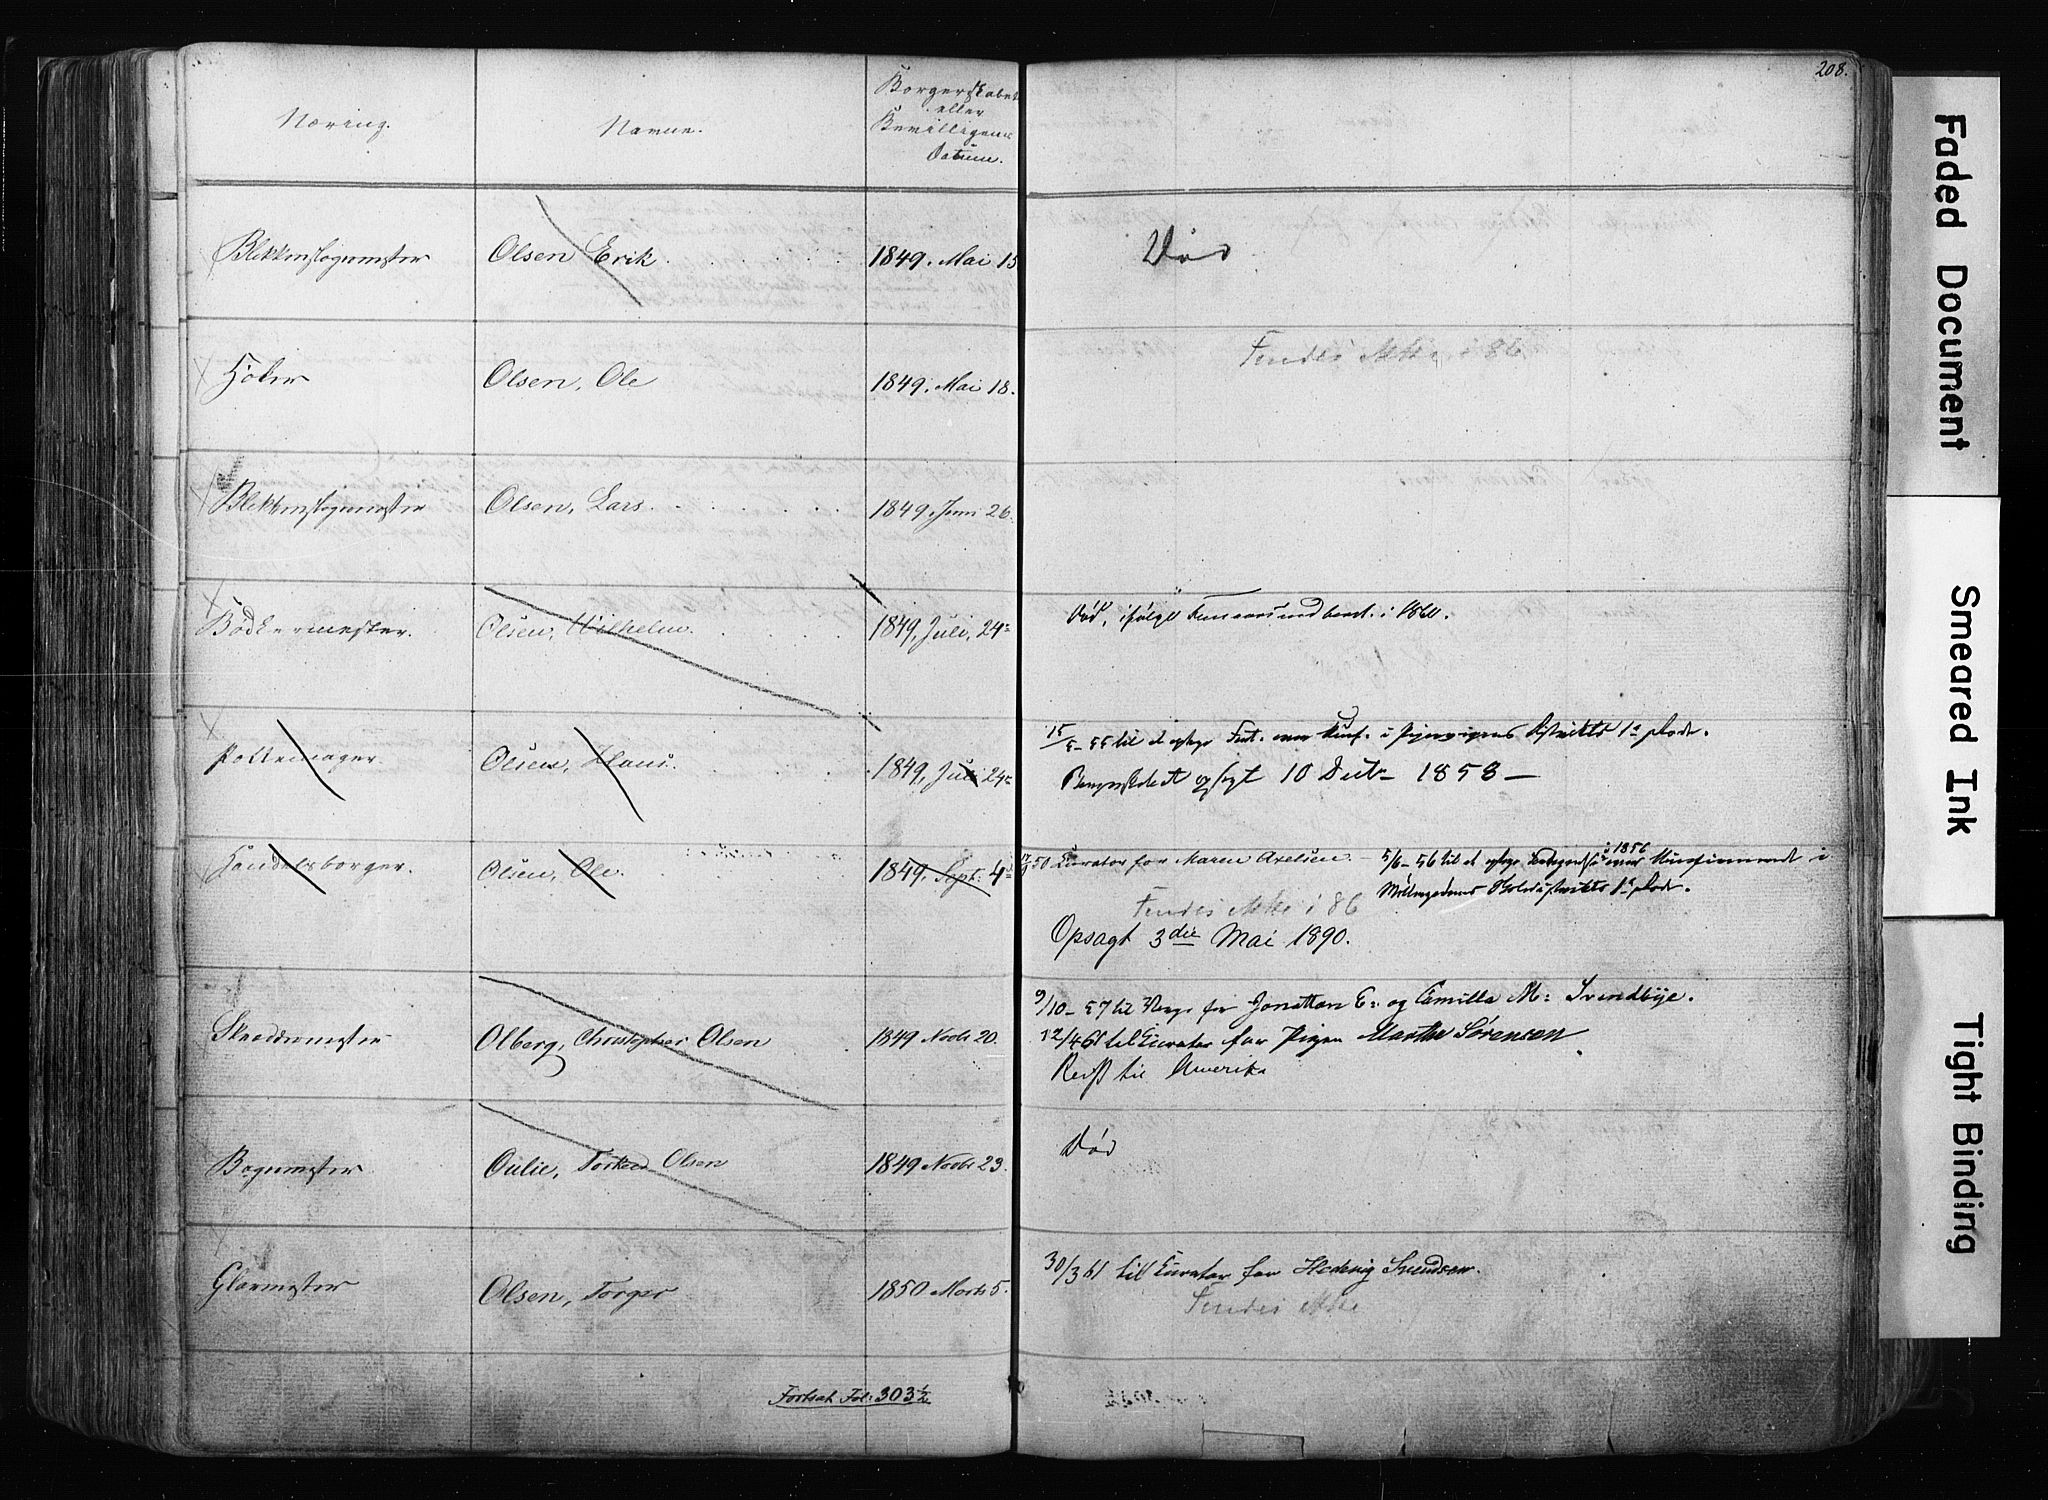 208.
Næring.
Navne.
Borgerskabets
eller
Bevilligens
Datum.
Blikkenslagermester Olsen Erik 1849. Mai 15 Død
Høker Olsen, Ole 1849. Mai 18. Findes ikke i 86
Blikkenslagermester Olsen, Lars. 1849 Juni 26.
Bødkermester. Olsen, Wilhelm. 1849, Juli, 24 Død, ifølge i 1860.
Pottemager. Olsen, Hans. 1849, Juli 24 15/5-55 til at i Distrikts 1ste Rode.
Borgerskabet opsagt 10 1858 —
Handelsborger. Olsen, Ole. 1849, Sept. 4 50 Curator for Maren Axelsen. — 5/6-56 til at i 1856 i
1ste Rode.
Findes ikke i 86
Opsagt 3die Mai 1890.
Skreddermester Olberg, Christopher Olsen 1849 Novbr 20. 9/10-57 til Verge for Jonattan E: og Camilla M: Svendbye.
12/4 61 til Curator for Pigen Marthe Sørensen
Reist til Amerika
Bagermester Oulie, Torkild Olsen 1849 Novbr 23. Død
Glarmester Olsen, Torger 1850 Marts 5. 30/3 61 til Curator for Hedevig Svendsen.
Findes ikke
Fortsat Fol: 303½
Faded Document
Smeared Ink
Tight Binding